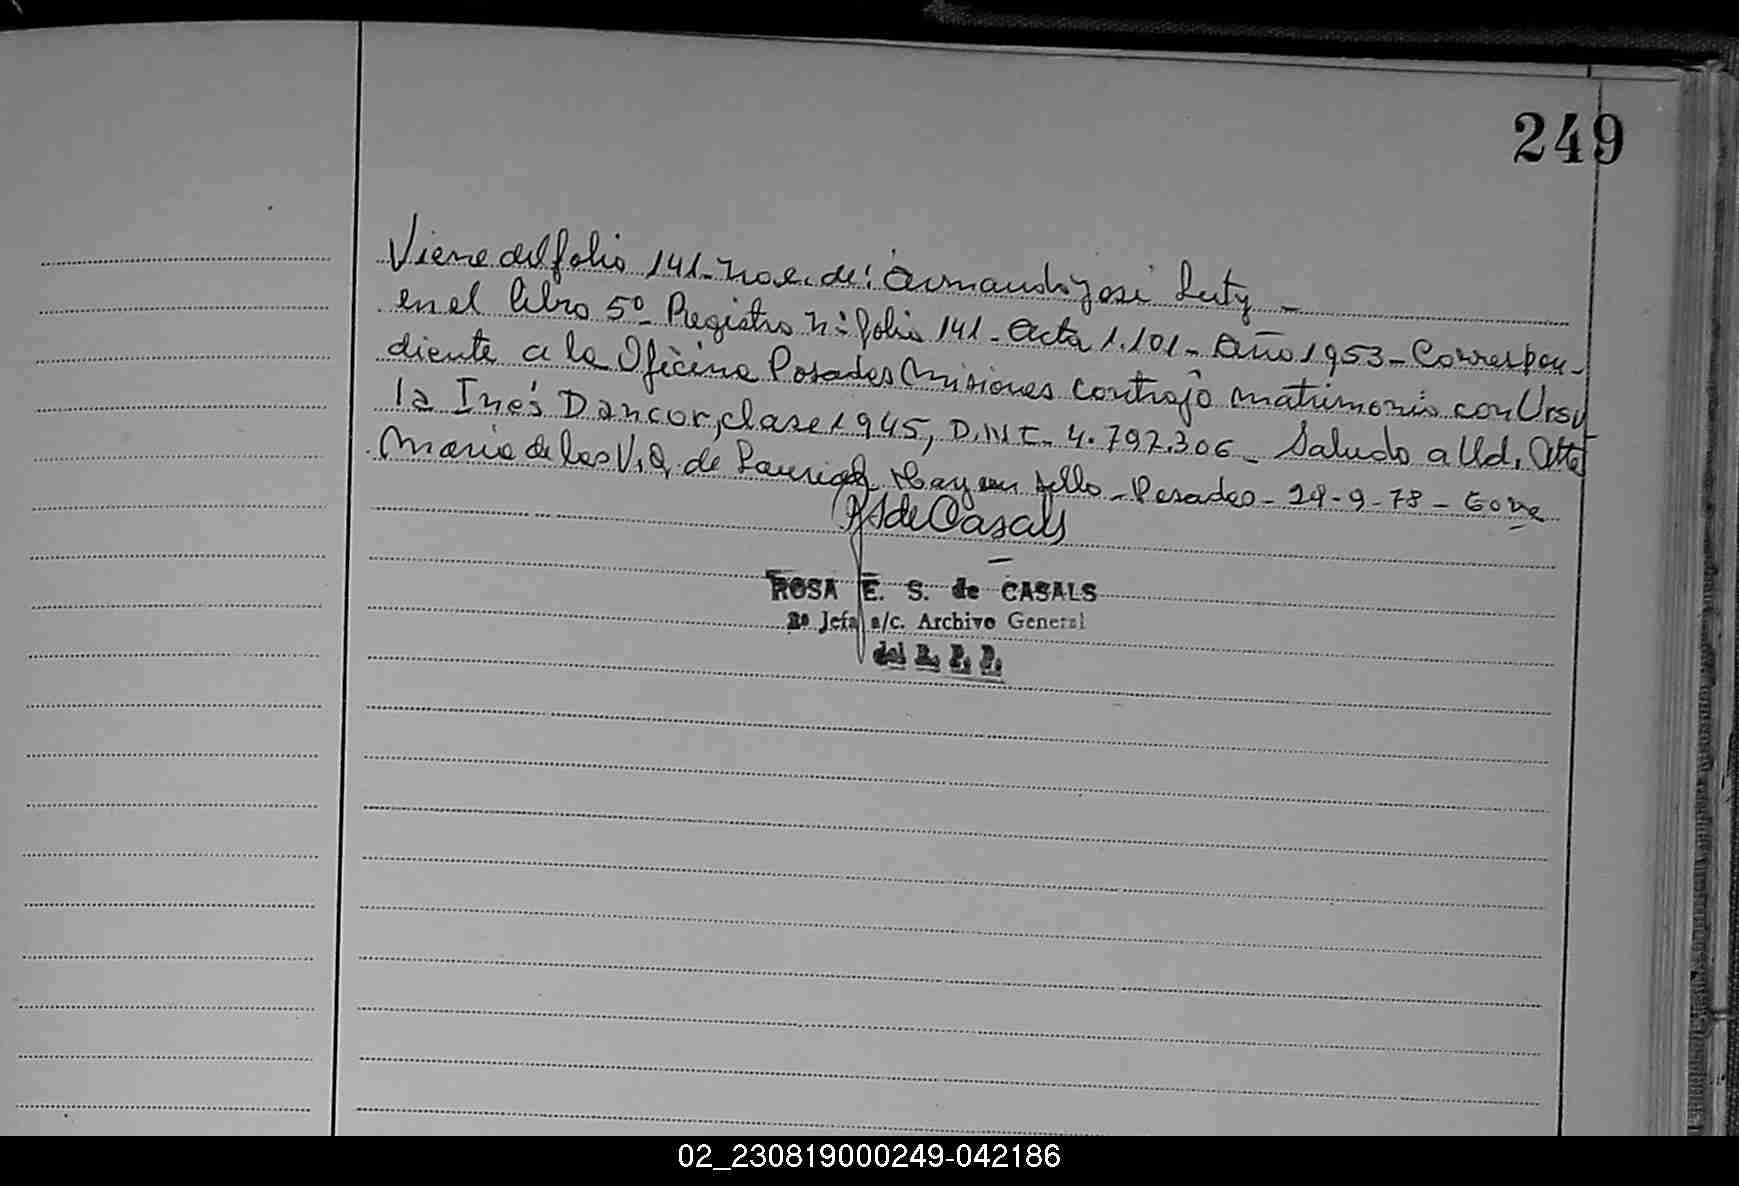 249
Viene del folio 141- Nac. de: Armando José Luty -
en el libro 5º- Registro Nº folio 141- Acta 1.101- Año 1953- Correspon-
diente a la Oficina Posadas Misiones contrajo matrimonio con Ursu
la Inés Dancor, clase 1945, D.N.I- 4.792.306- Saludo a Ud. Atte
Maria de las V. Q. de Hay un sello- Posadas- 29-9-78-
de Casals
ROSA E. S. de CASALS
2ª Jefa a/c. Archivo General
del R. P. P.
02_230819000249-042186